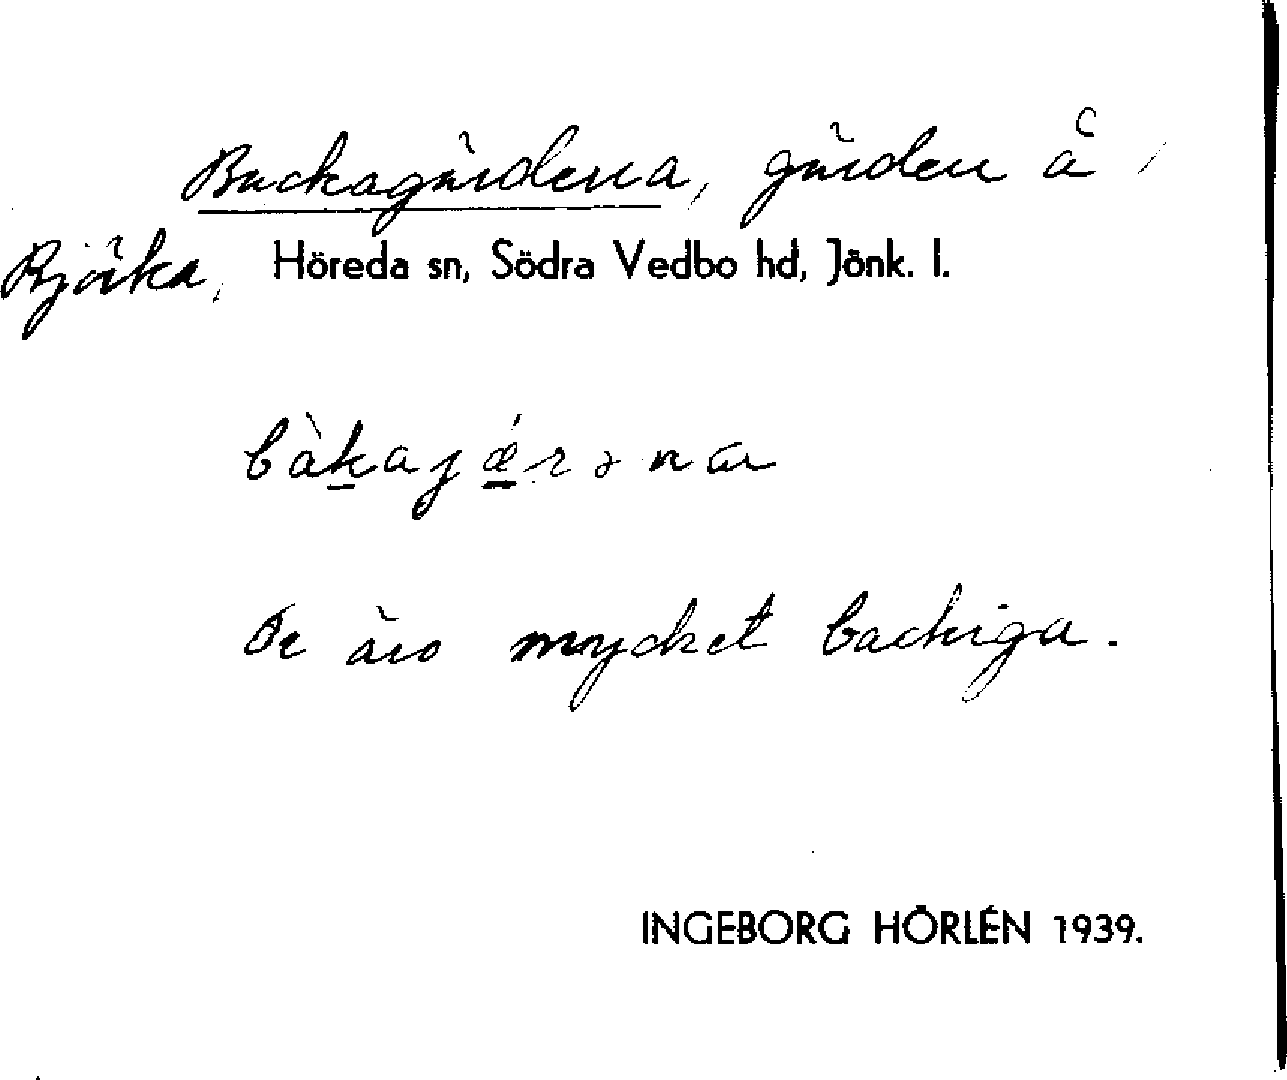 Backagärdena, gärden å
Bjärka, Höreda sn, Södra Vedbo hd, Jönk. l.
bàkajǽrəna
De äro mycket backiga.
INGEBORG HÖRLÉN 1939.